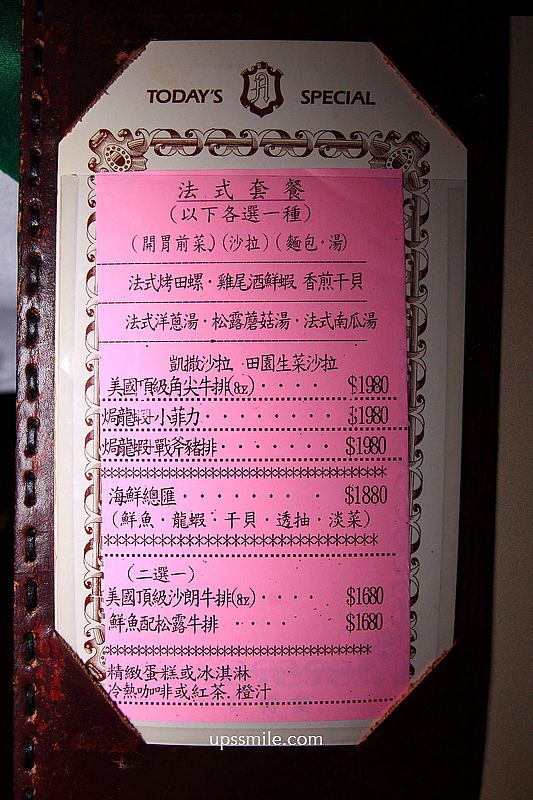 TODAY'S A SPECIAL
法式套餐
(以下各選一種)
(開胃前菜)(沙拉)(麵包·湯)
法式烤田螺·雞尾酒鮮蝦 香煎干貝
法式洋蔥湯·松露蘑菇湯·法式南瓜湯
凱撒沙拉 田園生菜沙拉
美國頂級角尖牛排(8oz)‧‧‧‧ $1980
焗龍蝦+小菲力‧‧‧‧‧‧‧‧ $1980
焗龍蝦+戰斧豬排‧‧‧‧‧‧ $1980
********************************
海鮮總匯‧‧‧‧‧‧‧‧ $1880
(鮮魚·龍蝦·干貝·透抽·淡菜)
********************************
(二選一)
美國頂級沙朗牛排(8oz)‧‧‧‧ $1680
鮮魚配松露牛排‧‧‧‧ $1680
********************************
精緻蛋糕或冰淇淋
冷熱咖啡或紅茶.橙汁
upssmile.com